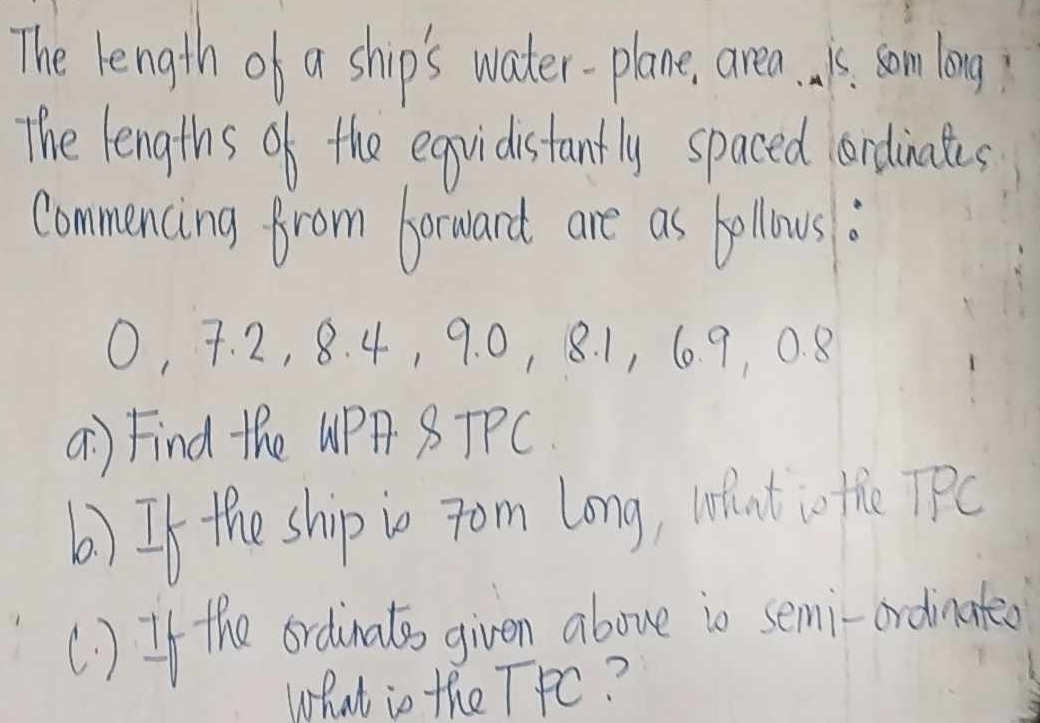 The length of a ship's water-plane, area is 50m long
The lengths of the equidistantly spaced ordinates
Commencing from forward are as follows:
0, 7.2, 8.4, 9.0, 8.1, 6.9, 0.8
a.) Find the WPA & TPC.
b.) If the ship is 70m long, what is the TPC
c.) If the ordinates given above is semi-ordinates
what is the TPC?